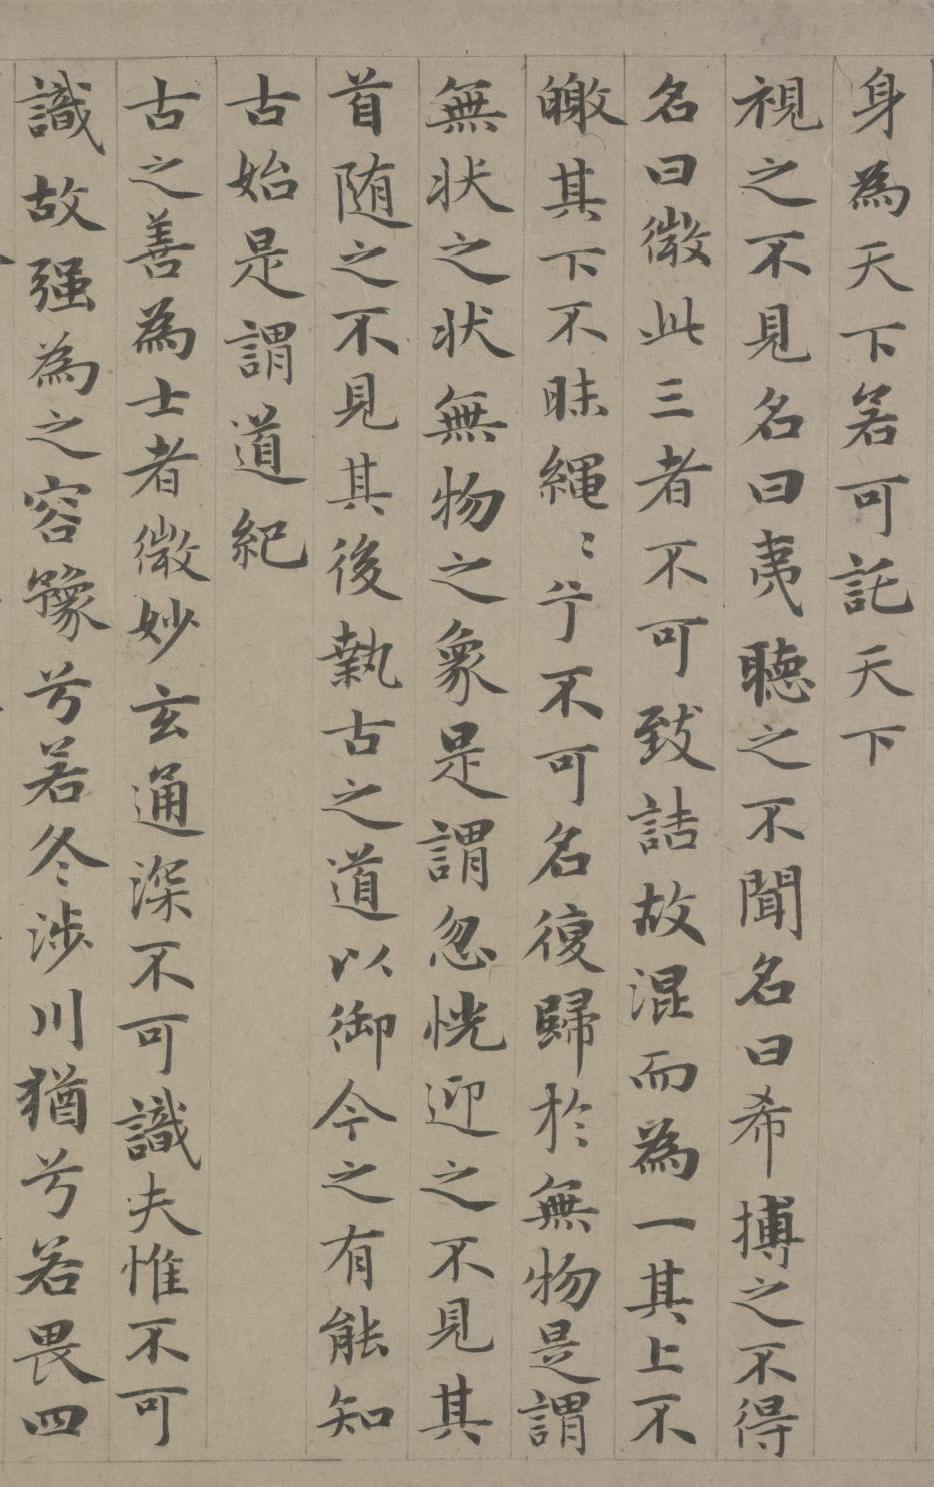 身為天下若可託天下
視之不見名曰夷聴之不聞名曰希搏之不得
名曰微此三者不可致詰故混而為一其上不
皦其下不昧繩〻兮不可名復歸於無物是謂
無状之状無物之象是謂忽恍迎之不見其
首随之不見其後執古之道以御今之有能知
古始是謂道紀
古之善為士者微妙玄通深不可識夫惟不可
識故强為之容豫兮若冬涉川猶兮若畏四